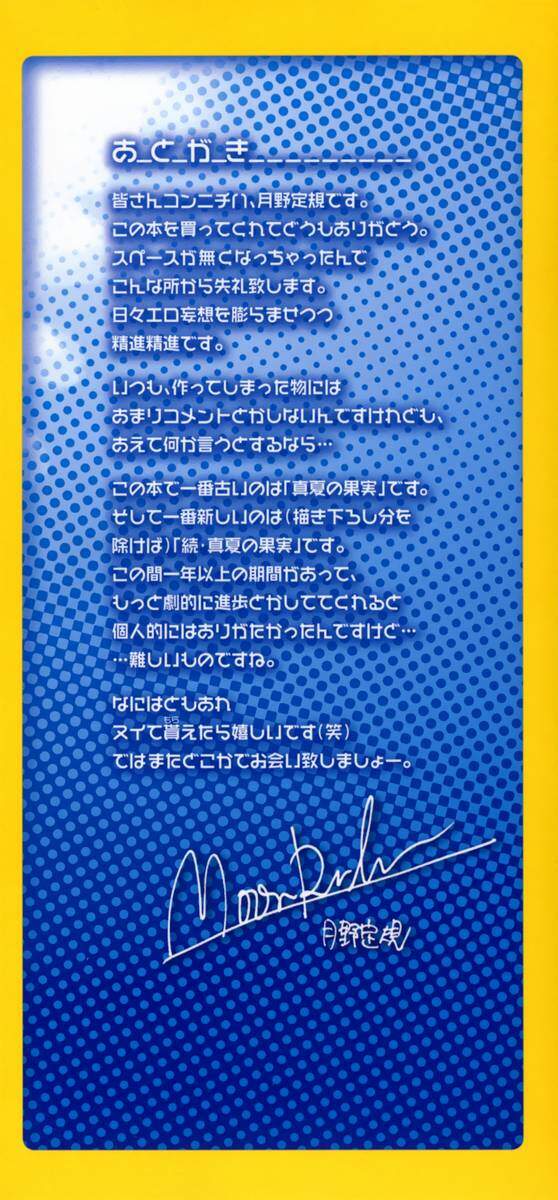 あ_と_が_き_________
皆さんコンニチハ、月野定規です。
この本を買ってくれてどうもありがとう。
スペースが無くなっちゃったんで
こんな所から失礼致します。
日々エロ妄想を膨らませつつ
精進精進です。
いつも、作ってしまった物には
あまりコメントとかしないんですけれども、
あえて何か言うとするなら…
この本で一番古いのは「真夏の果実」です。
そして一番新しいのは(描き下ろし分を
除けば)「続・真夏の果実」です。
この間一年以上の期間があって、
もっと劇的に進歩とかしててくれると
個人的にはありがたかったんですけど…
…難しいものですね。
なにはともあれ
もら
ヌイて貰えたら嬉しいです(笑)
ではまたどこかでお会い致しましょー。
MoonRuler
月野定規